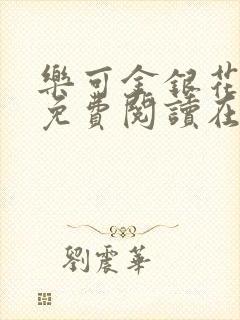 樂可金銀花
免費閱讀在
劉震華